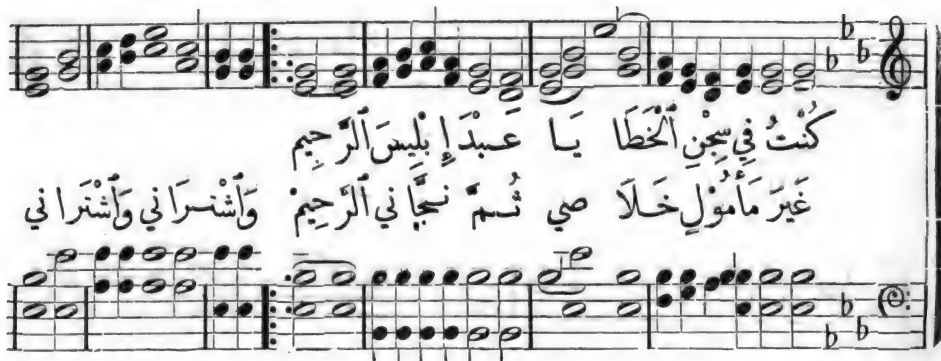 كُنْتُ فِي سِجْنِ ٱلْخَطَا يَا عَبْدَ إِبْلِيسَ ٱلرَّجِيم
غَيْرَ مَأْمُوْلٍ خَلَا صي ثُمَّ نَجَّاني ٱلرَّحِيم وَٱشْتَرَاني وَٱشْتَرَا ني